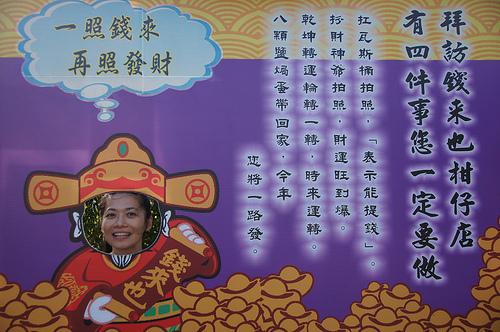 一照錢來
再照發財
拜訪錢來也柑仔店
有四件事您一定要做
扛瓦斯桶拍照，「表示能提錢」。
與財神爺拍照，財運旺到爆。
乾坤轉運輪轉一轉，時來運轉。
八顆鹽焗蛋帶回家，今年
您將一路發。
錢來也